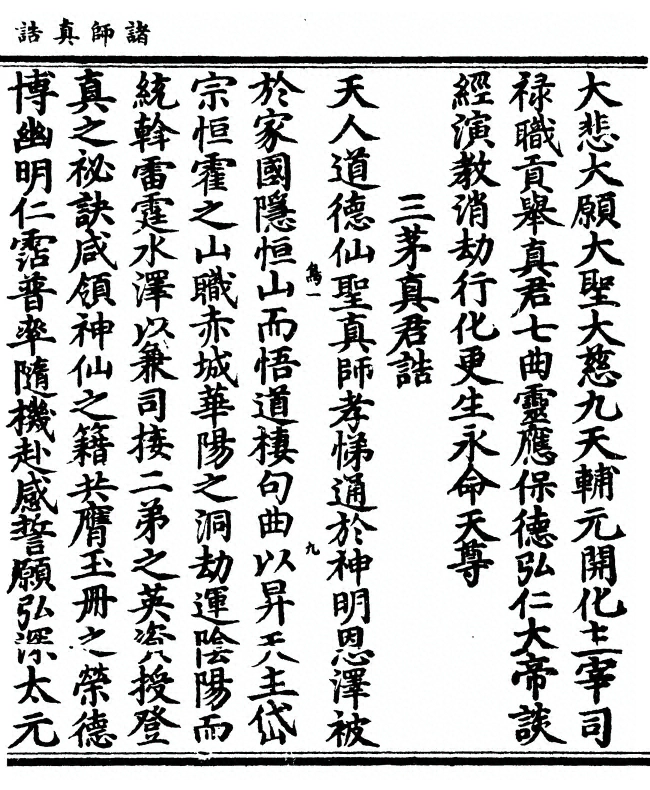 諸師真誥
大悲大願大聖大慈九天輔元開化主宰司
祿職貢舉真君七曲靈應保德弘仁大帝談
經演教消劫行化更生永命天尊
三茅真君誥
天人道德仙聖真師孝悌通於神明恩澤被
鳥一
九
於家國隱恒山而悟道棲句曲以昇天主岱
宗恒霍之山職赤城華陽之洞劫運陰陽而
統斡雷霆水澤以兼司接二弟之英資授登
真之祕訣咸領神仙之籍共膺玉冊之榮德
博幽明仁霑普率隨機赴感誓願弘深太元